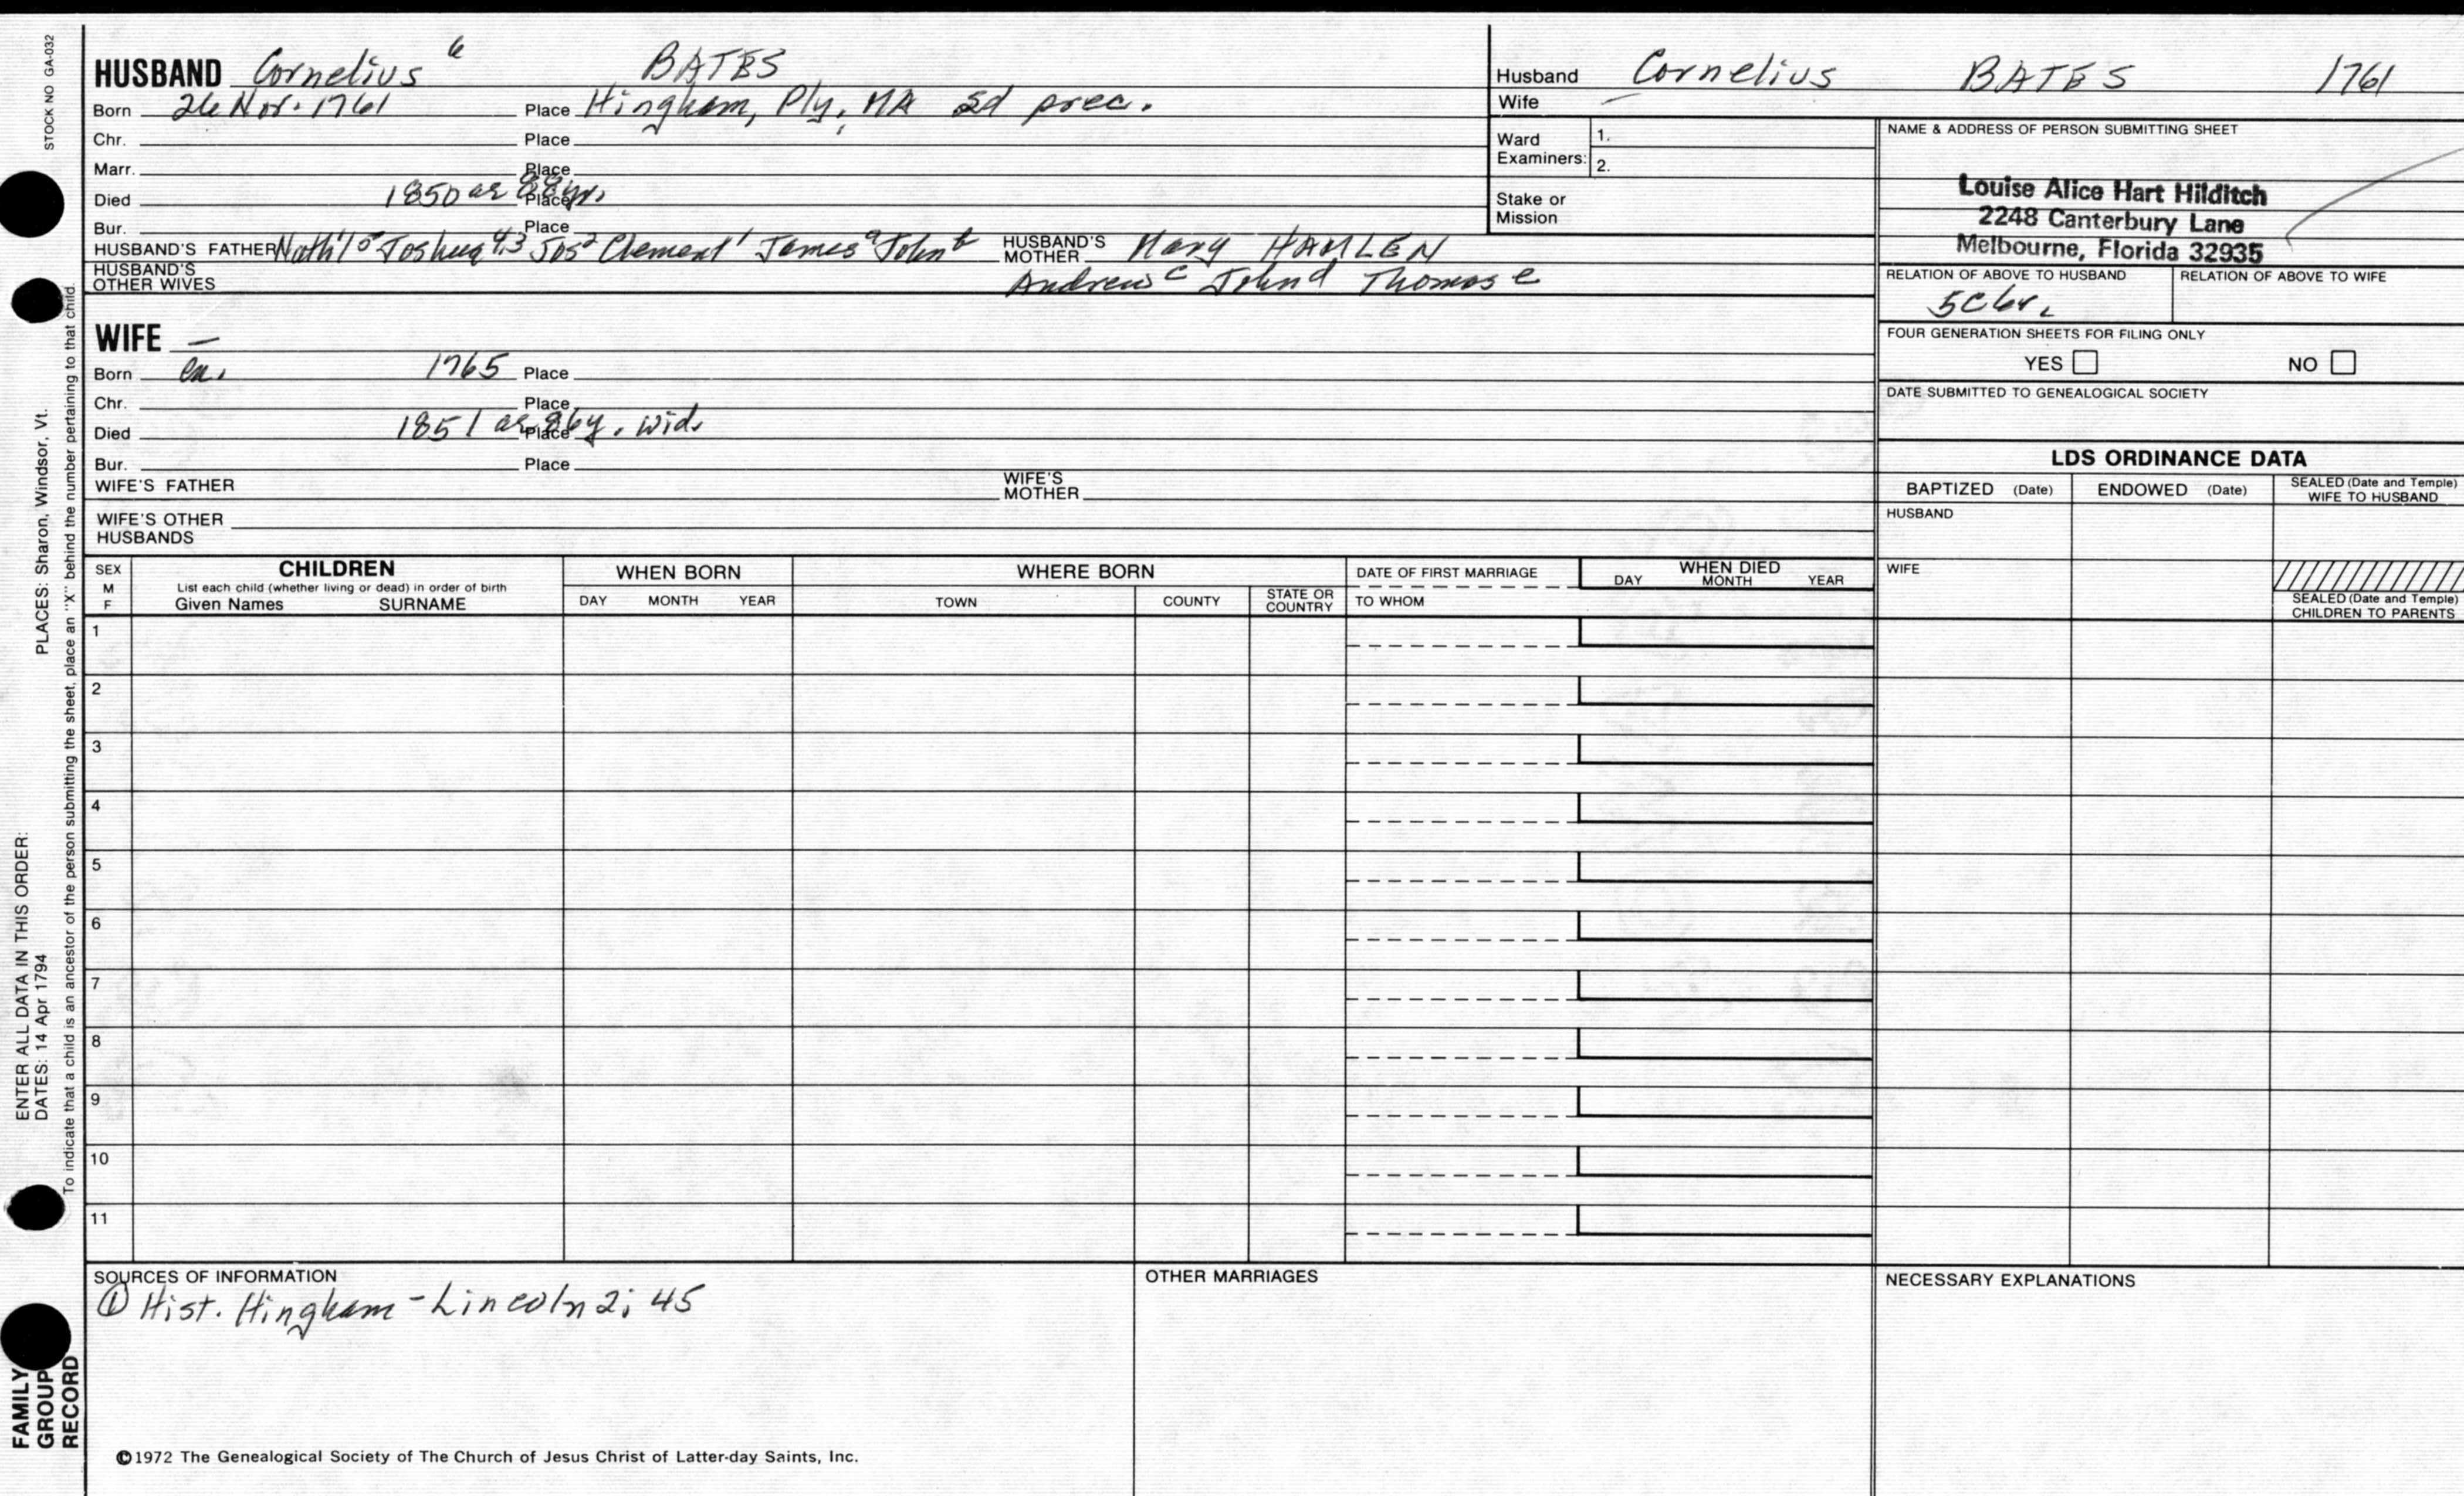 STOCK NO GA-032
HUSBAND Cornelius 6 BATES
Born 26 Nov. 1761 Place Hingham, Ply, MA 2d prec.
Chr. Place
Marr. Place
Died 1850 ae 88yr. Place
Bur. Place
HUSBAND'S FATHER Nath'l 5 Joshua 4,3 Jos 2 Clement 1 James a John b HUSBAND'S MOTHER Mary HAMLEN
HUSBAND'S OTHER WIVES Andrew c John d Thomas e
WIFE —
Born ca. 1765 Place
Chr. Place
Died 1851 ae 86y. wid. Place
Bur. Place
WIFE'S FATHER WIFE'S MOTHER
WIFE'S OTHER HUSBANDS
Husband Cornelius BATES 1761
Wife —
Ward Examiners: 1.
2.
Stake or Mission
NAME & ADDRESS OF PERSON SUBMITTING SHEET
Louise Alice Hart Hilditch
2248 Canterbury Lane
Melbourne, Florida 32935
RELATION OF ABOVE TO HUSBAND RELATION OF ABOVE TO WIFE
5C6r.
FOUR GENERATION SHEETS FOR FILING ONLY
YES NO
DATE SUBMITTED TO GENEALOGICAL SOCIETY
LDS ORDINANCE DATA
BAPTIZED (Date) ENDOWED (Date) SEALED (Date and Temple) WIFE TO HUSBAND
HUSBAND
WIFE
SEALED (Date and Temple) CHILDREN TO PARENTS
SEX M F
CHILDREN
List each child (whether living or dead) in order of birth
Given Names SURNAME
WHEN BORN
DAY MONTH YEAR
WHERE BORN
TOWN COUNTY STATE OR COUNTRY
DATE OF FIRST MARRIAGE
TO WHOM
WHEN DIED
DAY MONTH YEAR
1
2
3
4
5
6
7
8
9
10
11
SOURCES OF INFORMATION
① Hist. Hingham - Lincoln 2; 45
OTHER MARRIAGES
NECESSARY EXPLANATIONS
©1972 The Genealogical Society of The Church of Jesus Christ of Latter-day Saints, Inc.
FAMILY
GROUP
RECORD
ENTER ALL DATA IN THIS ORDER:
DATES: 14 Apr 1794 PLACES: Sharon, Windsor, Vt.
To indicate that a child is an ancestor of the person submitting the sheet, place an "X" behind the number pertaining to that child.